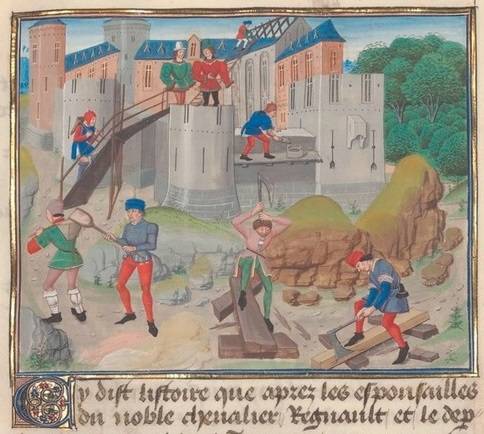 Cy dist listoire que aprez les espousailles
du noble chevalier Regnault et le dep